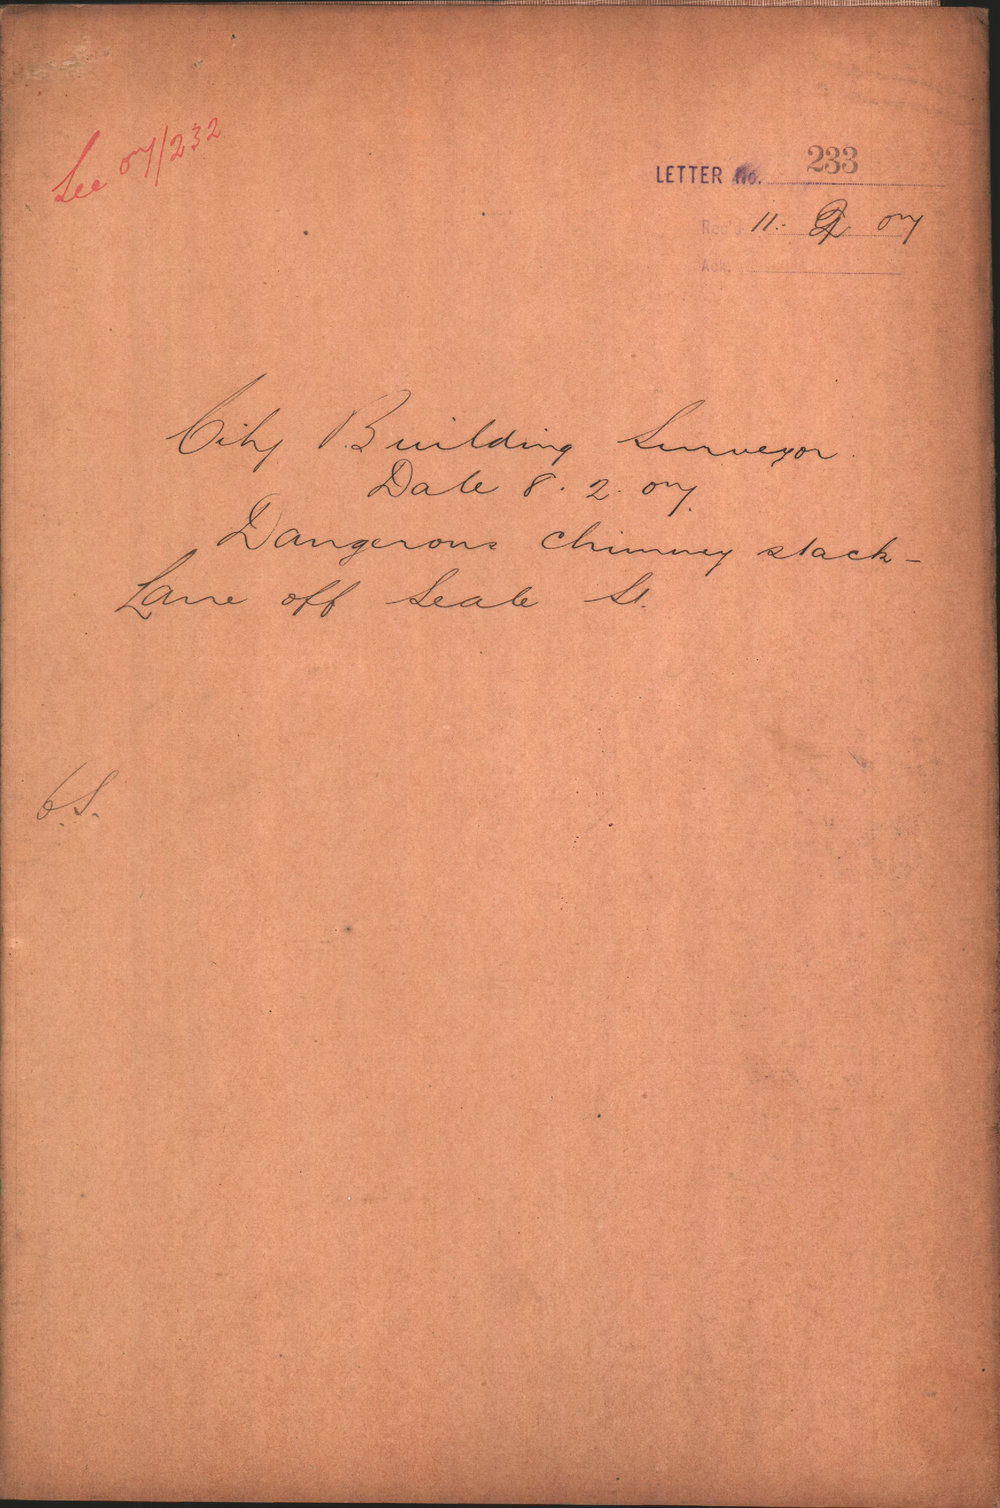 See 07/232
LETTER No. 233
Rec'd 11. 2 07
Ack.
City Building Surveyor.
Date 8. 2. 07.
Dangerous chimney stack -
Lane off Seale St.
C.S.